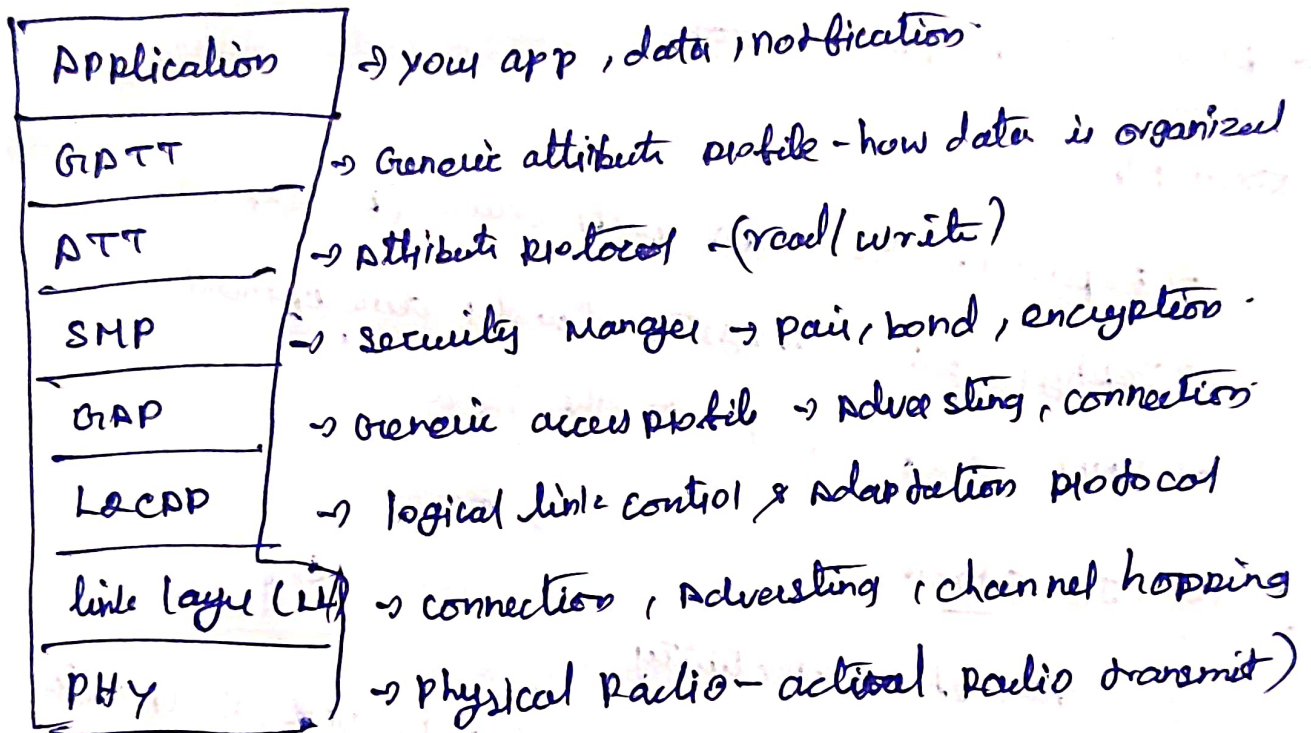 Application → your app, data, notification
GATT → Generic attribute profile - how data is organized
ATT → Attribute protocol - (read/write)
SMP → Security Manger → Pair, bond, encryption.
GAP → Generic access profile → Adversting, connection
L2CAP → logical link control & Adaptation protocol
link layer (LL) → connection, Adversting, channel hopping
PHY → Physical Radio - actual Radio transmit)